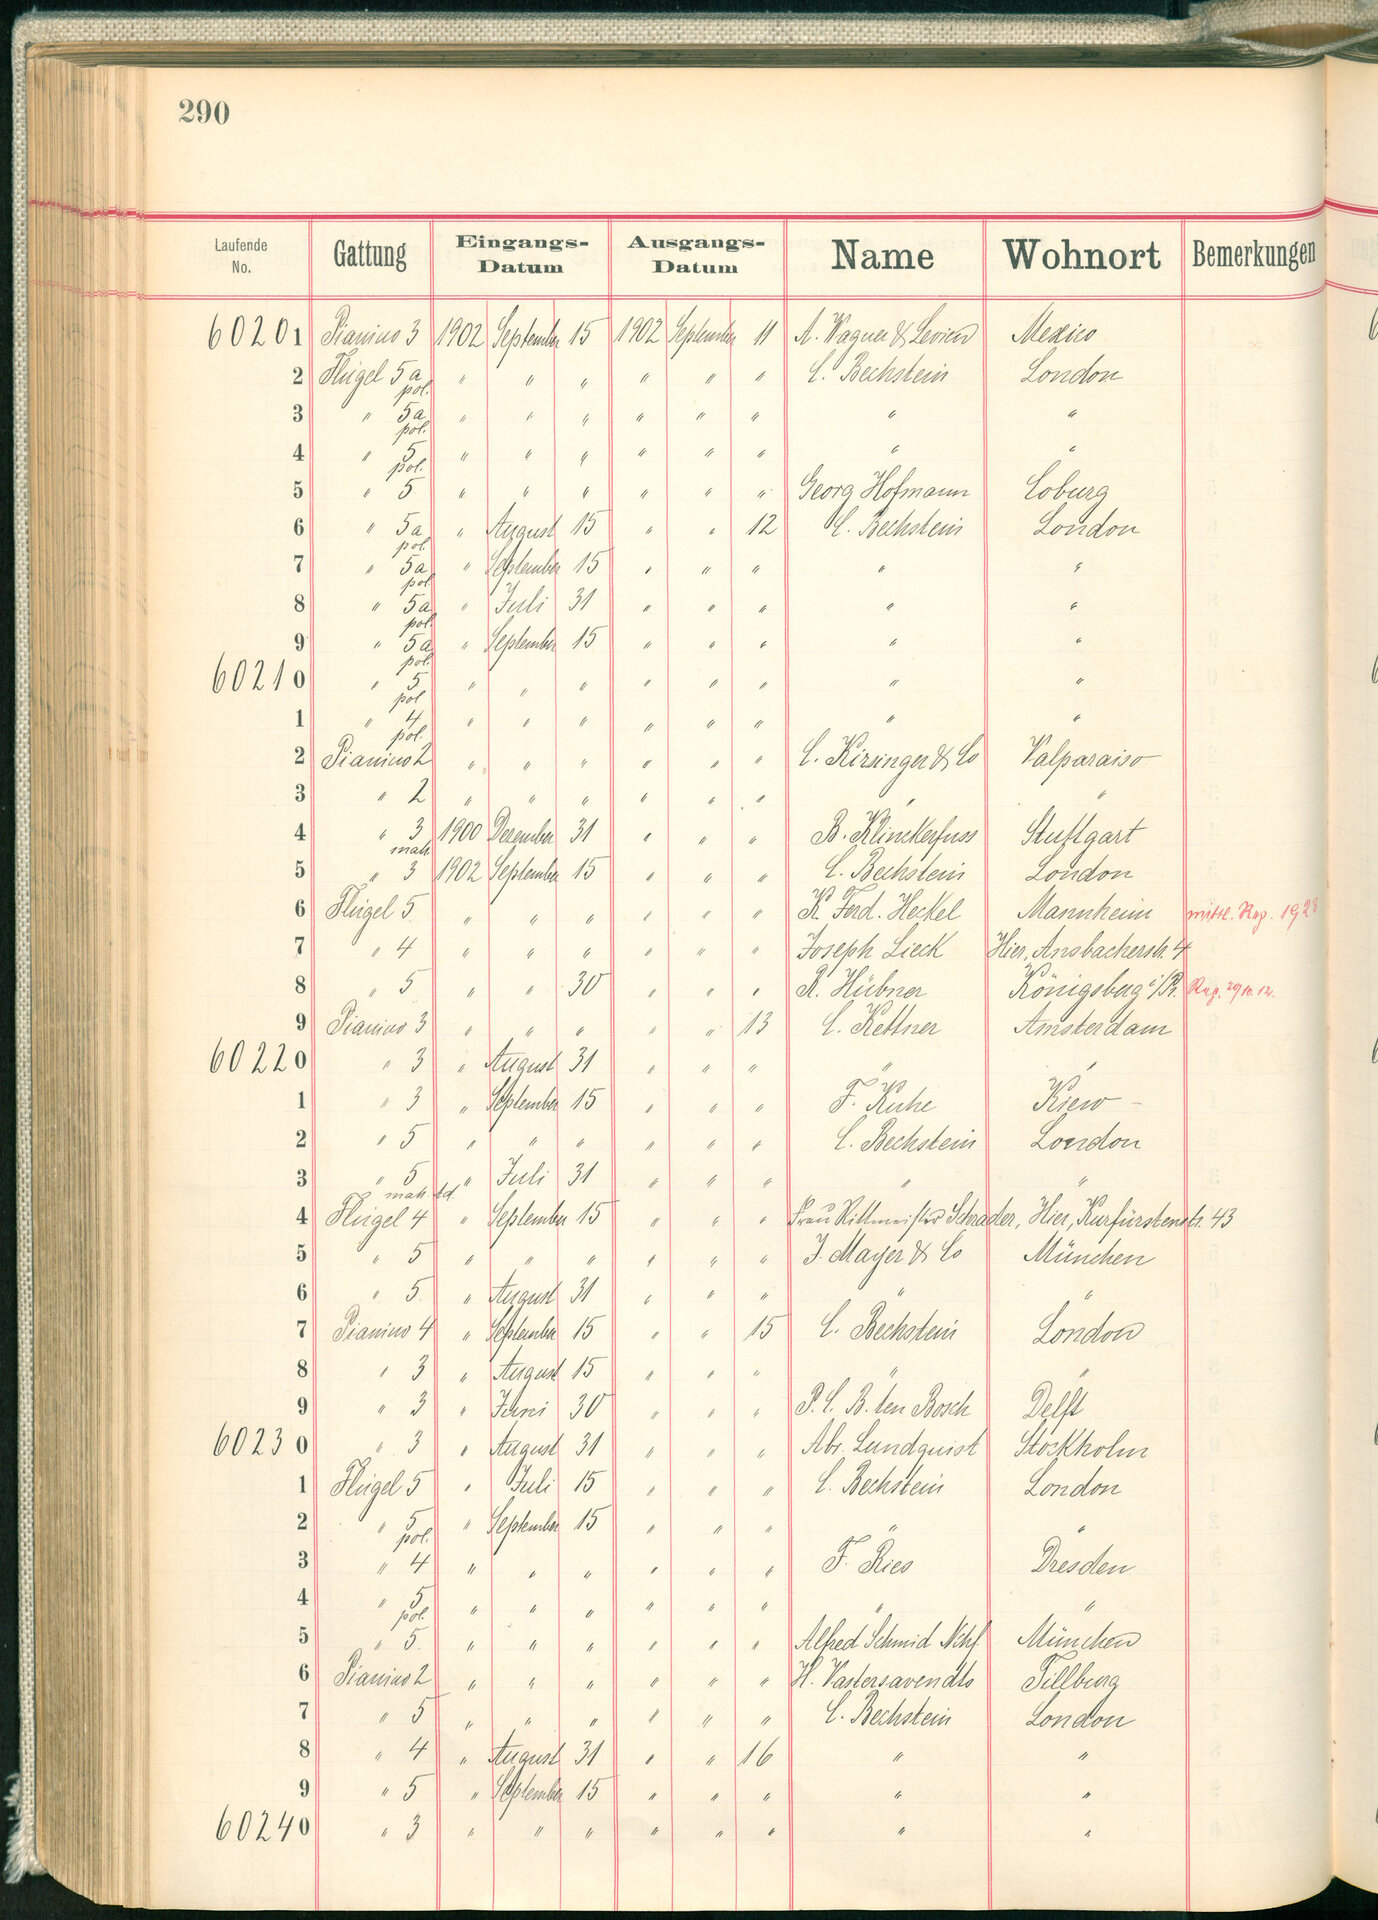 290
Laufende No. Gattung Eingangs-Datum Ausgangs-Datum Name Wohnort Bemerkungen
60201 Pianino 3 1902 September 15 1902 September 11 A. Wagner & Levien Mexico
2 Flügel 5a pol. " " " " " " C. Bechstein London
3 " 5a pol. " " " " " " " "
4 " 5 pol. " " " " " " " "
5 " 5 " " " " " " Georg Hofmann Coburg
6 " 5a pol. " August 15 " " 12 C. Bechstein London
7 " 5a pol. " September 15 " " " " "
8 " 5a pol. " Juli 31 " " " " "
9 " 5a pol. " September 15 " " " " "
60210 " 5 pol. " " " " " " " "
1 " 4 pol. " " " " " " " "
2 Pianino 2 " " " " " " C. Kirsinger & Co Valparaiso
3 " 2 " " " " " " " "
4 " 3 1900 Dezember 31 " " " B. Klinckerfuss Stuttgart
5 " mah 3 1902 September 15 " " " C. Bechstein London
6 Flügel 5 " " " " " " K. Ferd. Heckel Mannheim mittl. Rep. 1928
7 " 4 " " " " " " Joseph Lieck Hier, Ansbacherstr. 4
8 " 5 " " 30 " " " R. Hübner Königsberg i/Pr. Rep. 29.10.12.
9 Pianino 3 " " " " " 13 C. Kettner Amsterdam
60220 " 3 " August 31 " " " " "
1 " 3 " September 15 " " " F. Kuhe Kiew -
2 " 5 " " " " " " C. Bechstein London
3 " 5 mah " Juli 31 " " " " "
4 Flügel 4 " September 15 " " " Frau Rittmeister Schrader, Hier, Kurfürstenstr. 43
5 " 5 " " " " " " J. Mayer & Co München
6 " 5 " August 31 " " " " "
7 Pianino 4 " September 15 " " 15 C. Bechstein London
8 " 3 " August 15 " " " " "
9 " 3 " Juni 30 " " " P. C. B. ten Bosch Delft
60230 " 3 " August 31 " " " Abr. Lundquist Stockholm
1 Flügel 5 " Juli 15 " " " C. Bechstein London
2 " 5 pol. " September 15 " " " " "
3 " 4 " " " " " " F. Ries Dresden
4 " 5 pol. " " " " " " " "
5 " 5 " " " " " " Alfred Schmid Nchf. München
6 Pianino 2 " " " " " " H. Vastersavendts Tillburg
7 " 5 " " " " " " C. Bechstein London
8 " 4 " August 31 " " 16 " "
9 " 5 " September 15 " " " " "
60240 " 3 " " " " " " " "